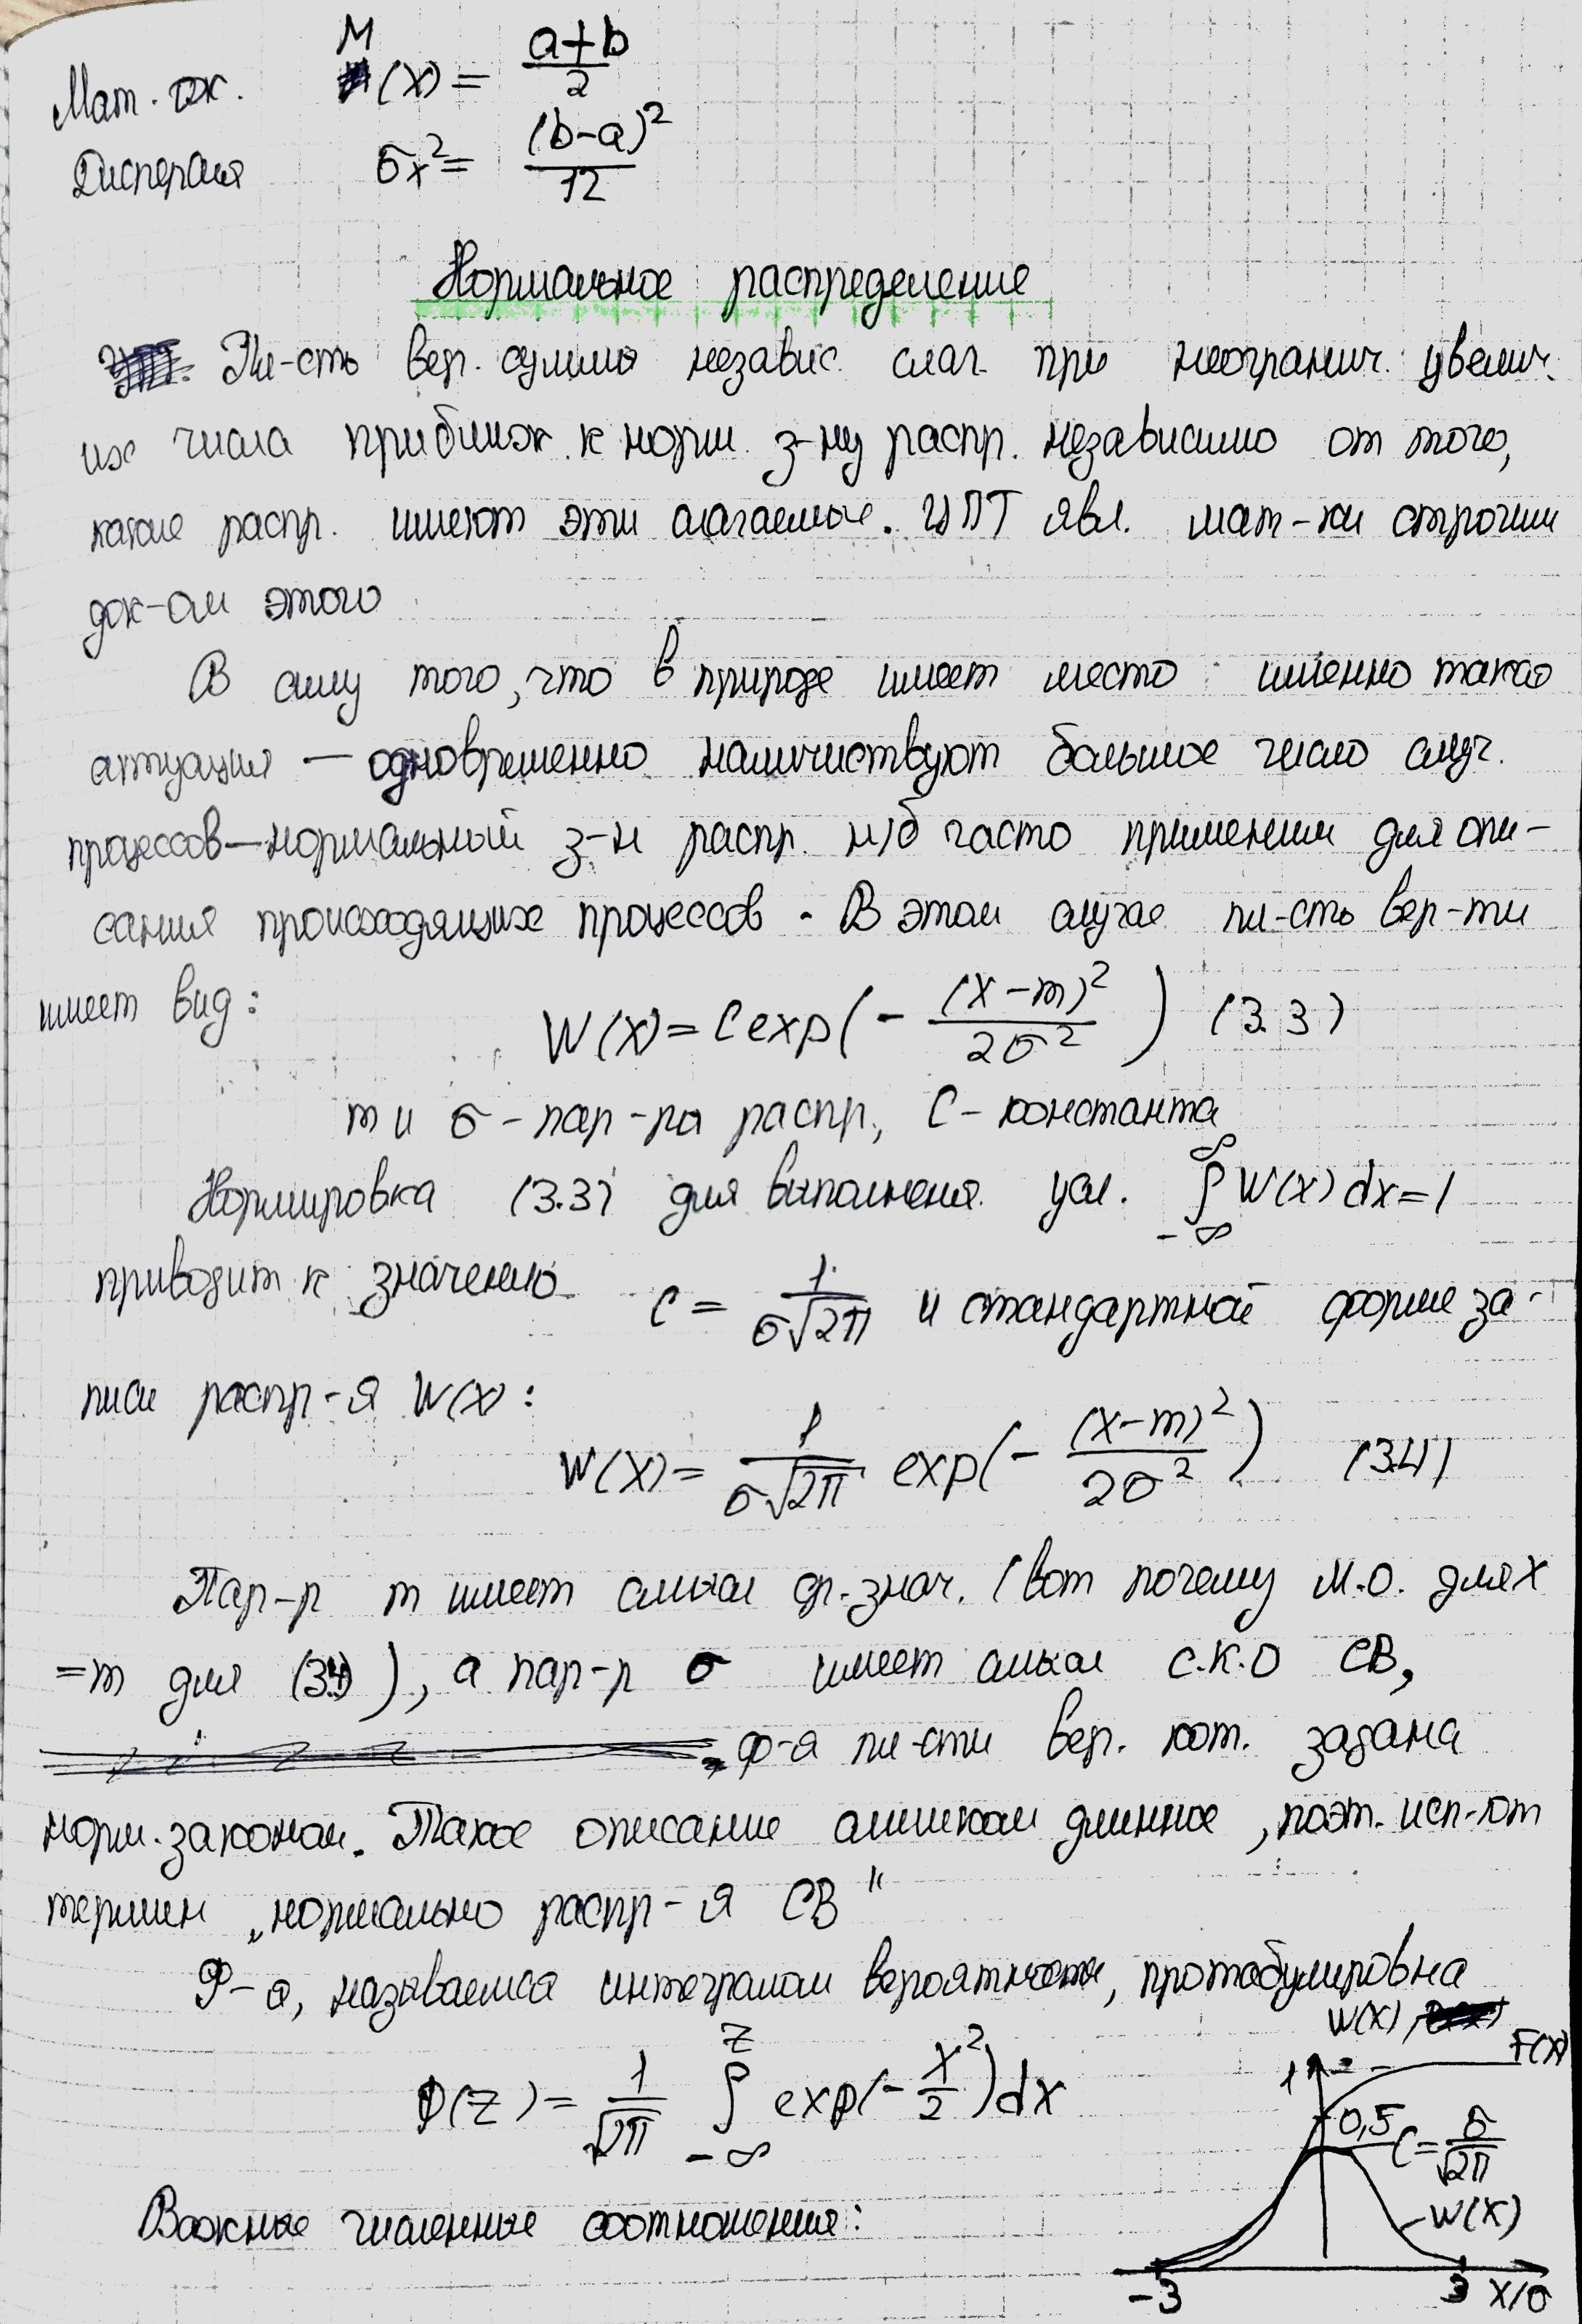 Мат. ож. M(x) = (a+b)/2
Дисперсия σx² = (b-a)²/12
Нормальное распределение
Пл-сть вер. суммы независ. слаг. при неогранич. увелич.
их числа приближ. к норм. з-ну распр. независимо от того,
какие распр. имеют эти слагаемые. ЦПТ явл. мат-ки строгим
док-ом этого
В силу того, что в природе имеет место именно такая
ситуация — одновременно наличиствуют большое число случ.
процессов — нормальный з-н распр. м/б часто применим для опи-
сания происходящих процессов. В этом случае пл-сть вер-ти
имеет вид:
W(x) = C exp(- (x-m)²/2σ²) (3.3)
m и σ - пар-ры распр., C - константа
Нормировка (3.3) для выполнения усл. ∫_{-∞}^{∞} W(x) dx = 1
приводит к значению C = 1/(σ√2π) и стандартной форме за-
писи распр-я W(x):
W(x) = 1/(σ√2π) exp(- (x-m)²/2σ²) (3.4)
Пар-р m имеет смысл ср. знач. (вот почему М.О. для x
=m для (3.4)), а пар-р σ имеет смысл С.К.О СВ,
ф-я пл-сти вер. кот. задана
норм. законом. Такое описание слишком длинное, поэт. исп-ют
термин „нормально распр-я СВ"
Ф-я, называемая интегралом вероятности, протабулирована
Ф(z) = 1/√2π ∫_{-∞}^{z} exp(- x²/2) dx
Важные численные соотношения:
W(x),
F(x)
1
0,5
C = σ/√2π
W(x)
-3 3 x/σ